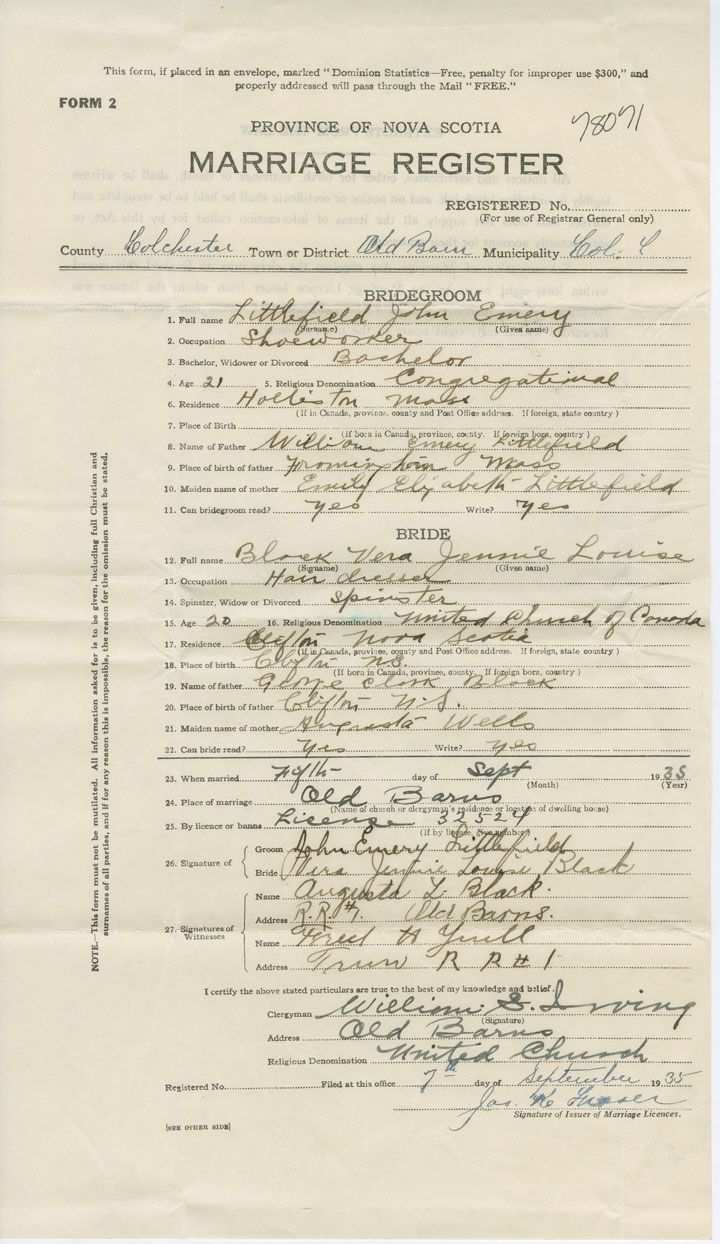 This form, if placed in an envelope, marked "Dominion Statistics—Free, penalty for improper use $300," and
properly addressed will pass through the Mail "FREE."
FORM 2
78071
PROVINCE OF NOVA SCOTIA
MARRIAGE REGISTER
REGISTERED No.
(For use of Registrar General only)
County Colchester Town or District Old Barn Municipality Col.
BRIDEGROOM
1. Full name Littlefield John Emery
(Surname) (Given name)
2. Occupation Shoeworker
3. Bachelor, Widower or Divorced Bachelor
4. Age 21 5. Religious Denomination Congregational
6. Residence Holliston Mass
(If in Canada, province, county and Post Office address. If foreign, state country)
7. Place of Birth
(If born in Canada, province, county. If foreign born, country)
8. Name of Father William Emery Littlefield
9. Place of birth of father Framingham Mass
10. Maiden name of mother Emily Elizabeth Littlefield
11. Can bridegroom read? yes Write? yes
BRIDE
12. Full name Black Vera Jennie Louise
(Surname) (Given name)
13. Occupation Hair dresser
14. Spinster, Widow or Divorced Spinster
15. Age 20 16. Religious Denomination United Church of Canada
17. Residence Clifton Nova Scotia
(If in Canada, province, county and Post Office address. If foreign, state country)
18. Place of birth Clifton N.S.
(If born in Canada, province, county. If foreign born, country)
19. Name of father George Clark Black
20. Place of birth of father Clifton N.S.
21. Maiden name of mother Augusta Wells
22. Can bride read? Yes Write? yes
23. When married Fifth day of Sept 1935
(Month) (Year)
24. Place of marriage Old Barns
(Name of church or clergyman's residence or location of dwelling house)
25. By licence or banns License 32524
(If by license, give number)
26. Signature of
Groom John Emery Littlefield
Bride Vera Jennie Louise Black
27. Signatures of Witnesses
Name Augusta L. Black.
Address R.R.#1. Old Barns.
Name Fred H Yuill
Address Truro R R # 1
I certify the above stated particulars are true to the best of my knowledge and belief.
Clergyman William S. Irving
(Signature)
Address Old Barns
Religious Denomination United Church
Registered No. Filed at this office 7th day of September 1935
Jas. K.
Signature of Issuer of Marriage Licences.
[SEE OTHER SIDE]
NOTE.—This form must not be mutilated. All information asked for is to be given, including full Christian and
surnames of all parties, and if for any reason this is impossible, the reason for the omission must be stated.